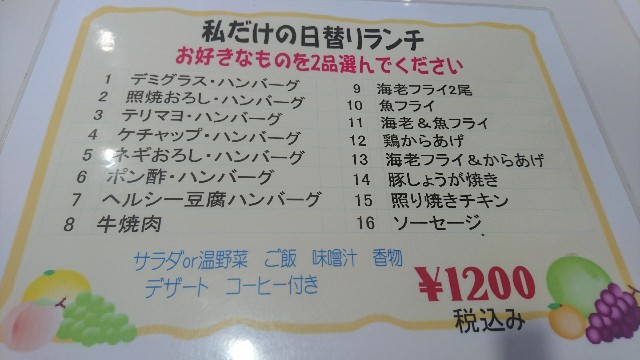 私だけの日替りランチ
お好きなものを2品選んでください
1 デミグラス・ハンバーグ
2 照焼おろし・ハンバーグ
3 テリマヨ・ハンバーグ
4 ケチャップ・ハンバーグ
5 ネギおろし・ハンバーグ
6 ポン酢・ハンバーグ
7 ヘルシー豆腐ハンバーグ
8 牛焼肉
9 海老フライ2尾
10 魚フライ
11 海老&魚フライ
12 鶏からあげ
13 海老フライ&からあげ
14 豚しょうが焼き
15 照り焼きチキン
16 ソーセージ
サラダor温野菜 ご飯 味噌汁 香物
デザート コーヒー付き
¥1200
税込み